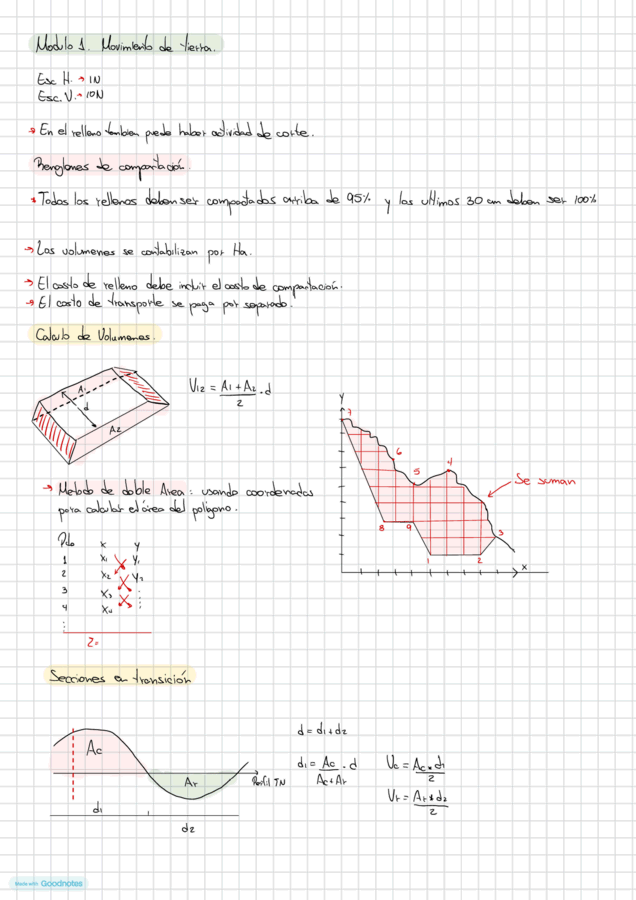 Modulo 1. Movimiento de tierra.
Esc H. → 1N
Esc. V. → 10N
→ En el relleno tambien puede haber actividad de corte.
Renglones de compactación.
* Todos los rellenos deben ser compactados arriba de 95% y los ultimos 30 cm deben ser 100%
→ Los volumenes se contabilizan por Ha.
→ El costo de relleno debe incluir el costo de compactación.
→ El costo de transporte se paga por separado.
Calculo de Volumenes.
A1
d
A2
V12 = A1 + A2 / 2 · d
Y
7
6
5
4
Se suman
8
9
3
1
2
X
→ Metodo de doble Area: usando coordenadas
para calcular el área del poligono.
Pto x y
1 x1 y1
2 x2 y2
3 x3 :
4 x4 :
:
Σ=
Secciones en transición
Ac
Ar
Perfil TN
d1
d2
d = d1 + d2
d1 = Ac / Ac + Ar · d
Vc = Ac * d1 / 2
Vr = Ar * d2 / 2
Made with Goodnotes